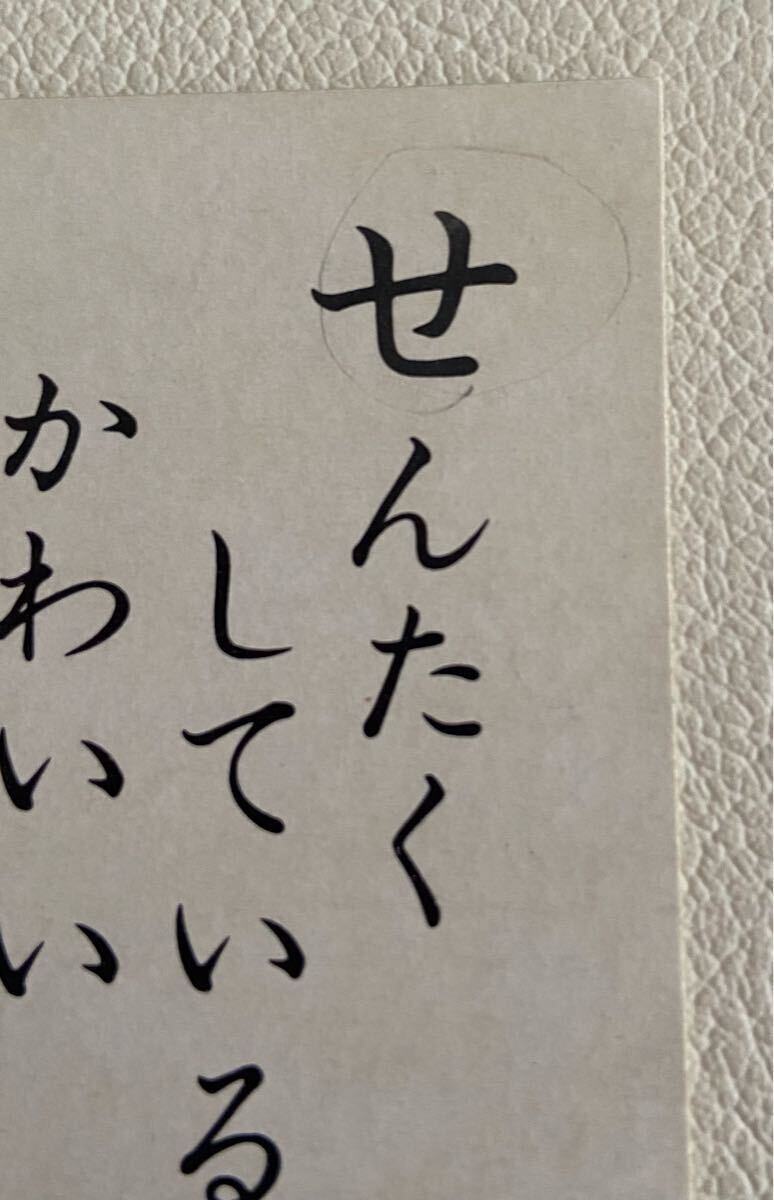 せんたく
している
かわいい